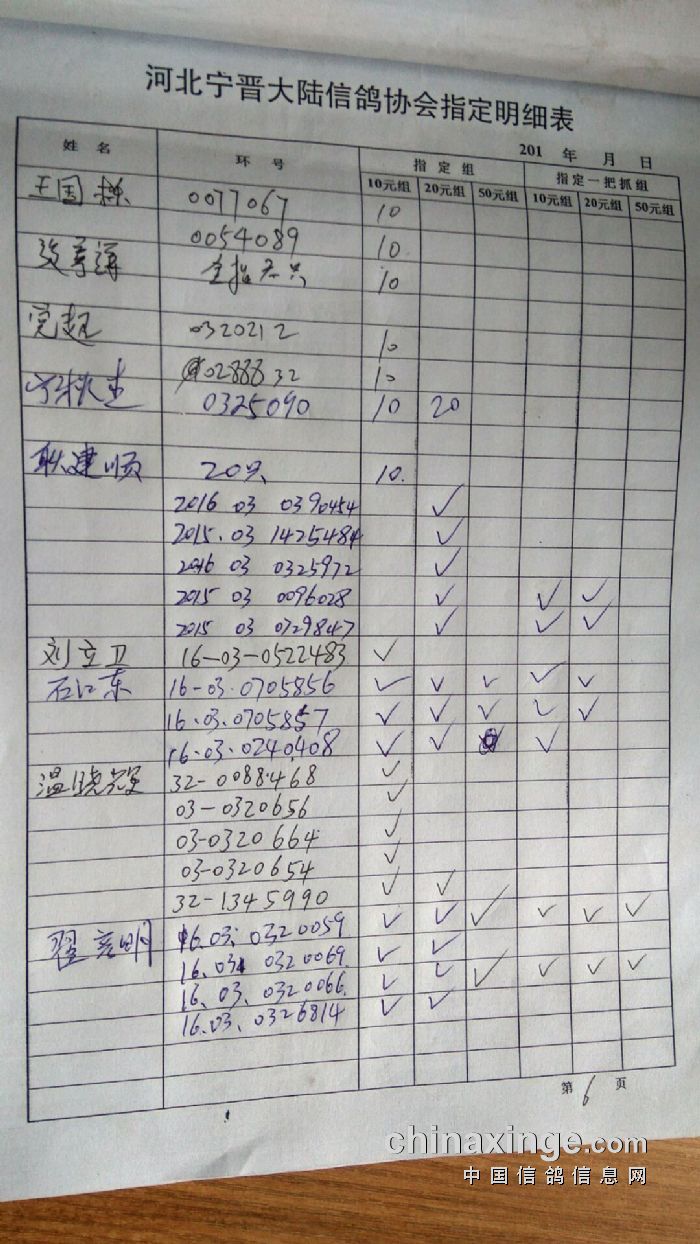 河北宁晋大陆信鸽协会指定明细表
201 年 月 日
姓 名 环 号 指 定 组 指定一把抓组
10元组 20元组 50元组 10元组 20元组 50元组
王国栋 0077067 10
0054089 10
10
党起 0320212 10
0288832 10
0325090 10 20
耿建顺 20只 10
2016 03 0390454 ✓
2015.03 1425484 ✓
2016 03 0325972 ✓
2015 03 0096028 ✓ ✓ ✓
2015 03 0729847 ✓ ✓ ✓
刘立卫 16-03-0522483 ✓
石江东 16-03.0705856 ✓ ✓ ✓ ✓ ✓
16.03.0705857 ✓ ✓ ✓ ✓ ✓
16.03.0240408 ✓ ✓ ✓
温晓 32-0088468 ✓
03-0320656 ✓
03-0320664 ✓
03-0320654 ✓
32-1345990 ✓ ✓
翟亮明 16.03. 0320059 ✓ ✓ ✓ ✓ ✓ ✓
16.03 0320069. ✓ ✓
16.03.0320066. ✓ ✓ ✓ ✓ ✓ ✓
16.03.0326814 ✓ ✓
第 6 页
chinaxinge.com
中国信鸽信息网